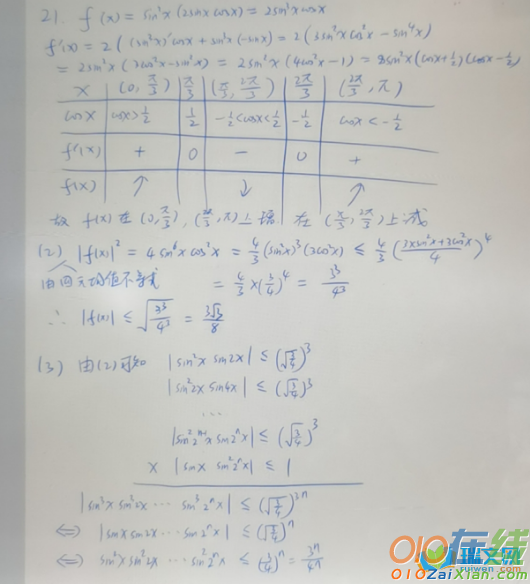 21. f(x) = sin²x (2sinx cosx) = 2sin³x cosx
f'(x) = 2((sin³x)'cosx + sin³x(-sinx)) = 2(3sin²x cos²x - sin⁴x)
= 2sin²x(3cos²x - sin²x) = 2sin²x(4cos²x - 1) = 8sin²x(cosx + 1/2)(cosx - 1/2)
x | (0, π/3) | π/3 | (π/3, 2π/3) | 2π/3 | (2π/3, π)
cosx | cosx > 1/2 | 1/2 | -1/2 < cosx < 1/2 | -1/2 | cosx < -1/2
f'(x) | + | 0 | - | 0 | +
f(x) | ↑ | | ↓ | | ↑
故 f(x) 在 (0, π/3), (2π/3, π) 上增, 在 (π/3, 2π/3) 上减
(2) |f(x)|² = 4sin⁶x cos²x = 4/3 (sin²x)³(3cos²x) ≤ 4/3 ((3×sin²x + 3cos²x)/4)⁴
由四元均值不等式 = 4/3 × (3/4)⁴ = 3³/4³
∴ |f(x)| ≤ √(3³/4³) = 3√3/8
(3) 由(2)可知 |sin²x sin2x| ≤ (√(3/4))³
|sin²2x sin4x| ≤ (√(3/4))³
...
|sin²2ⁿ⁻¹x sin2ⁿx| ≤ (√(3/4))³
× |sinx sin²2ⁿx| ≤ 1
|sin³x sin³2x ... sin³2ⁿx| ≤ (√(3/4))³ⁿ
⇔ |sinx sin2x ... sin2ⁿx| ≤ (√(3/4))ⁿ
⇔ sin²x sin²2x ... sin²2ⁿx ≤ (3/4)ⁿ = 3ⁿ/4ⁿ
010在线
010ZaiXian.com
ruiwen.com